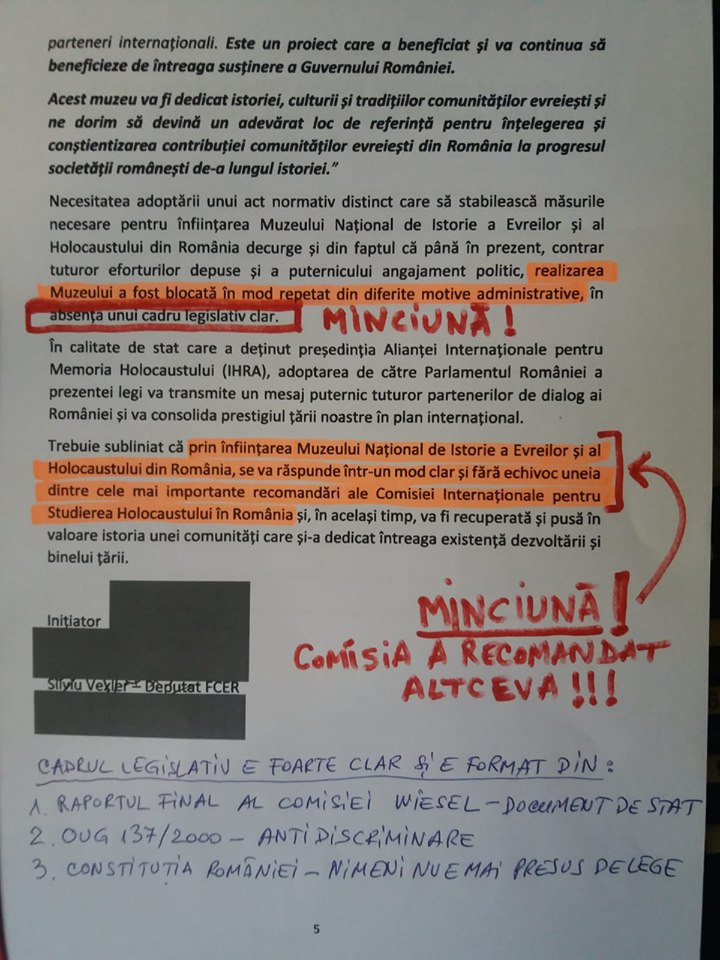 parteneri internaționali. Este un proiect care a beneficiat și va continua să
beneficieze de întreaga susținere a Guvernului României.
Acest muzeu va fi dedicat istoriei, culturii și tradițiilor comunităților evreiești și
ne dorim să devină un adevărat loc de referință pentru înțelegerea și
conștientizarea contribuției comunităților evreiești din România la progresul
societății românești de-a lungul istoriei.”
Necesitatea adoptării unui act normativ distinct care să stabilească măsurile
necesare pentru înființarea Muzeului Național de Istorie a Evreilor și al
Holocaustului din România decurge și din faptul că până în prezent, contrar
tuturor eforturilor depuse și a puternicului angajament politic, realizarea
Muzeului a fost blocată în mod repetat din diferite motive administrative, în
absența unui cadru legislativ clar. MINCIUNĂ!
În calitate de stat care a deținut președinția Alianței Internaționale pentru
Memoria Holocaustului (IHRA), adoptarea de către Parlamentul României a
prezentei legi va transmite un mesaj puternic tuturor partenerilor de dialog ai
României și va consolida prestigiul țării noastre în plan internațional.
Trebuie subliniat că prin înființarea Muzeului Național de Istorie a Evreilor și al
Holocaustului din România, se va răspunde într-un mod clar și fără echivoc uneia
dintre cele mai importante recomandări ale Comisiei Internaționale pentru
Studierea Holocaustului în România și, în același timp, va fi recuperată și pusă în
valoare istoria unei comunități care și-a dedicat întreaga existență dezvoltării și
binelui țării.
Inițiator
MINCIUNĂ!
COMISIA A RECOMANDAT
ALTCEVA!!!
Silviu Vexler – Deputat FCER
CADRUL LEGISLATIV E FOARTE CLAR ȘI E FORMAT DIN:
1. RAPORTUL FINAL AL COMISIEI WIESEL – DOCUMENT DE STAT
2. OUG 137/2000 – ANTIDISCRIMINARE
3. CONSTITUTIA ROMÂNIEI – NIMENI NU E MAI PRESUS DE LEGE
5